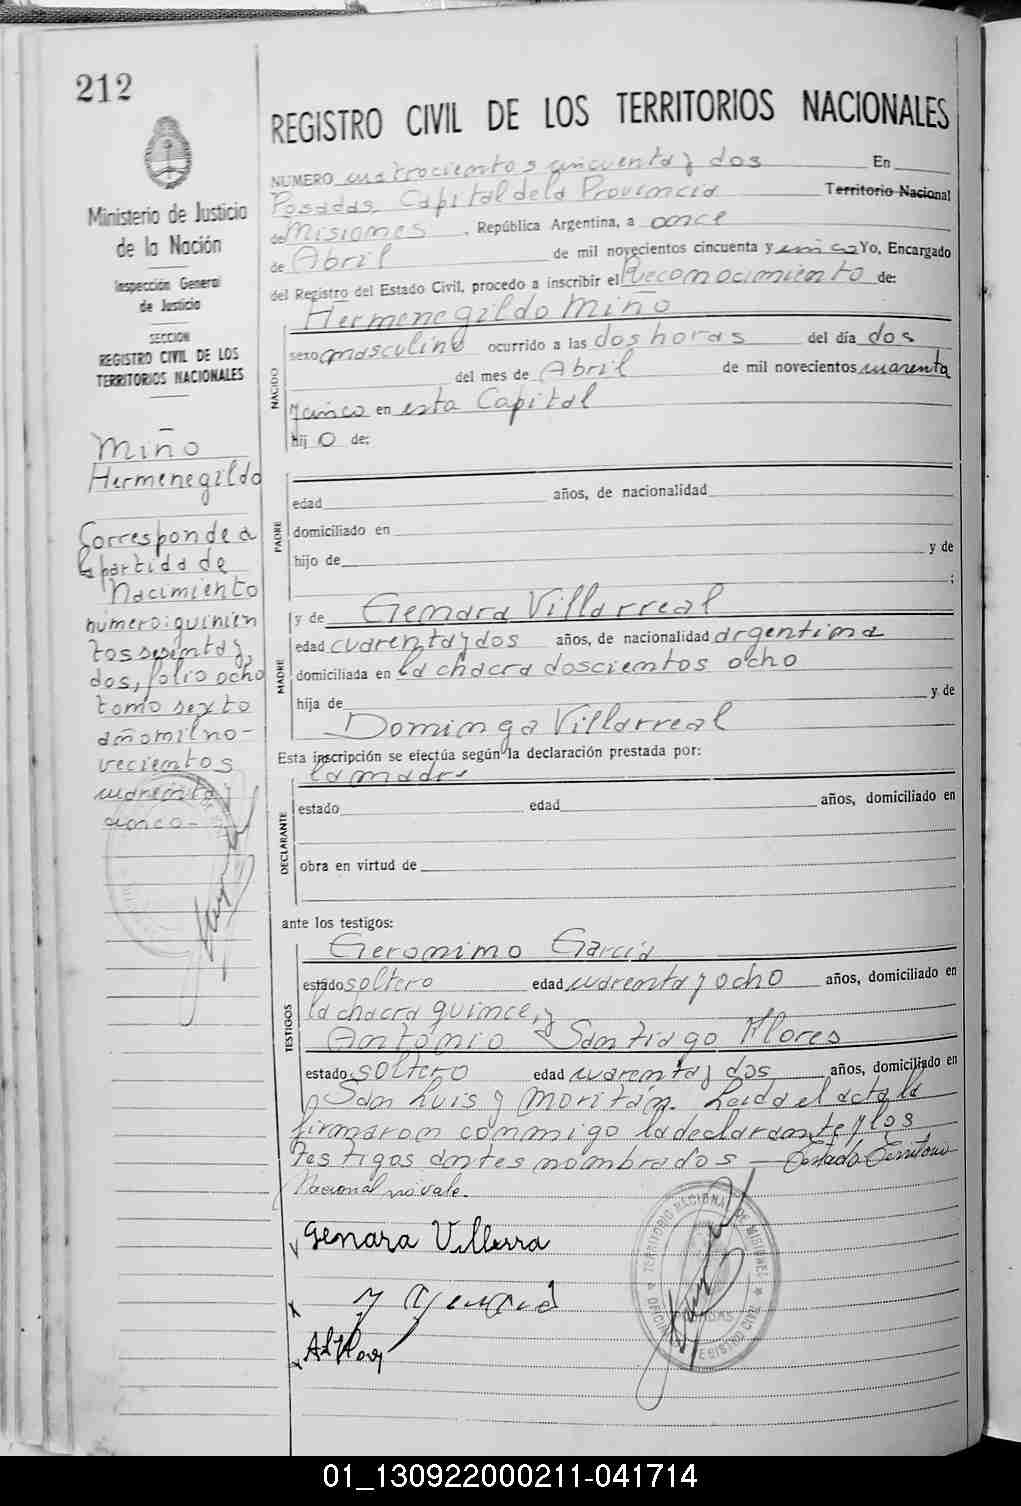 212
Ministerio de Justicia
de la Nación
Inspección General
de Justicia
SECCION
REGISTRO CIVIL DE LOS
TERRITORIOS NACIONALES
Miño
Hermenegildo
Corresponde a
la partida de
Nacimiento
número: quinien
tos sesenta y
dos, folio ocho
tomo sexto
año mil no-
vecientos
cuarenta y
cinco-
REGISTRO CIVIL DE LOS TERRITORIOS NACIONALES
NUMERO cuatrocientos cincuenta y dos En
Posadas, Capital de la Provincia Territorio Nacional
de Misiones, República Argentina, a once
de Abril de mil novecientos cincuenta y cinco Yo, Encargado
del Registro del Estado Civil, procedo a inscribir el Reconocimiento de:
NACIDO
Hermenegildo Miño
sexo masculino ocurrido a las dos horas del día dos
del mes de Abril de mil novecientos cuarenta
y cinco en esta Capital
hij o de:
PADRE
edad años, de nacionalidad
domiciliado en
hijo de y de
;
MADRE
y de Genara Villarreal
edad cuarenta y dos años, de nacionalidad argentina
domiciliada en la chacra doscientos ocho
hija de y de
Dominga Villarreal
Esta inscripción se efectúa según la declaración prestada por:
la madre
DECLARANTE
estado edad años, domiciliado en
obra en virtud de
ante los testigos:
TESTIGOS
Geronimo Garcia
estado soltero edad cuarenta y ocho años, domiciliado en
la chacra quince, y
Antonio Santiago Flores
estado soltero edad cuarenta y dos años, domiciliado en
San Luis y Moritán. Leida el acta la
firmaron conmigo la declarante y los
testigos antes nombrados — Testado: Territorio
Nacional no vale.
Genara Villerra
TERRITORIO NACIONAL DE MISIONES
REGISTRO CIVIL
01_130922000211-041714